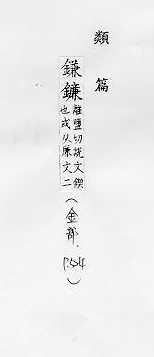 類篇
鎌鐮離鹽切說文鍥
也或从廉文二
(金部.)